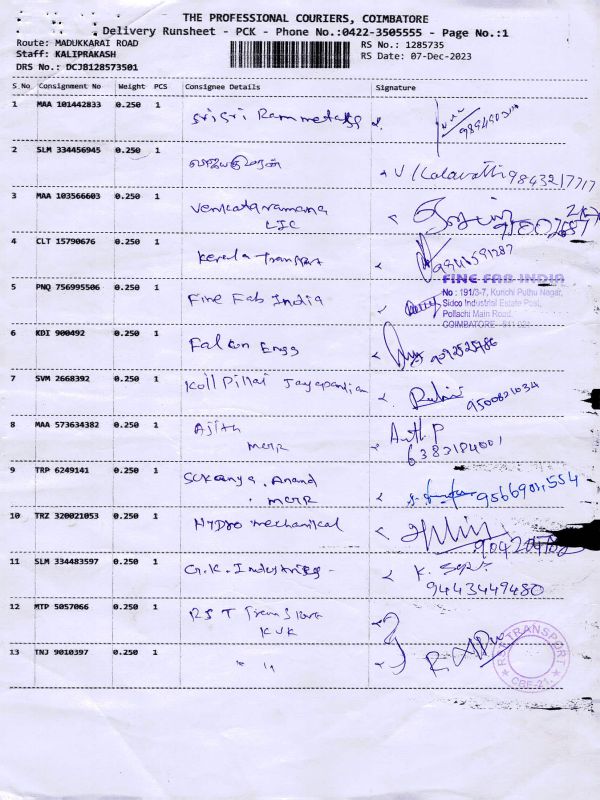 THE PROFESSIONAL COURIERS, COIMBATORE
Delivery Runsheet - PCK - Phone No.:0422-3505555 - Page No.:1
Route: MADUKKARAI ROAD
RS No.: 1285735
Staff: KALIPRAKASH
RS Date: 07-Dec-2023
DRS No.: DCJB128573501
S No Consignment No Weight PCS Consignee Details Signature
1 MAA 101442833 0.250 1 Sri Sri Ram metals
2 SLM 334456945 0.250 1 V Kalavathi 9843217717
3 MAA 103566603 0.250 1 Venkataramana
LIC
4 CLT 15790676 0.250 1 Kerala Transport 9941591287
5 PNQ 756995506 0.250 1 Fine Fab India
FINE FAB INDIA
No : 191/3-7, Kurichi Puthu Nagar,
Sidco Industrial Estate Post,
Pollachi Main Road,
COIMBATORE - 641 021
6 KDI 900492 0.250 1 Falcon Engg 9092525486
7 SVM 2668392 0.250 1 Koil Pillai Jayapandian 9500821034
8 MAA 573634382 0.250 1 Ajith
6382184001
9 TRP 6249141 0.250 1 Sukanya. Anand
9566901554
10 TRZ 320021053 0.250 1 Hydro mechanical
11 SLM 334483597 0.250 1 G.K. Industries -
9443449480
12 MTP 5057066 0.250 1 RST Transport
KVK
13 TNJ 9010397 0.250 1 " "
RST TRANSPORT
CBE-21.